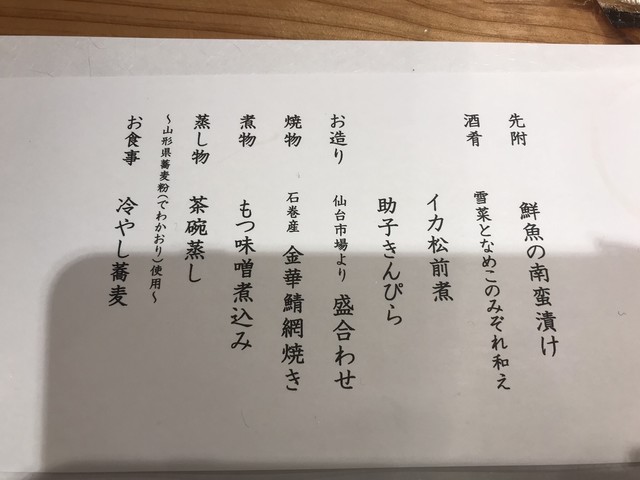 先附 鮮魚の南蛮漬け
酒肴 雪菜となめこのみぞれ和え
イカ松前煮
助子きんぴら
お造り 仙台市場より 盛合わせ
焼物 石巻産 金華鯖網焼き
煮物 もつ味噌煮込み
蒸し物 茶碗蒸し
～山形県蕎麦粉(でわかおり)使用～
お食事 冷やし蕎麦